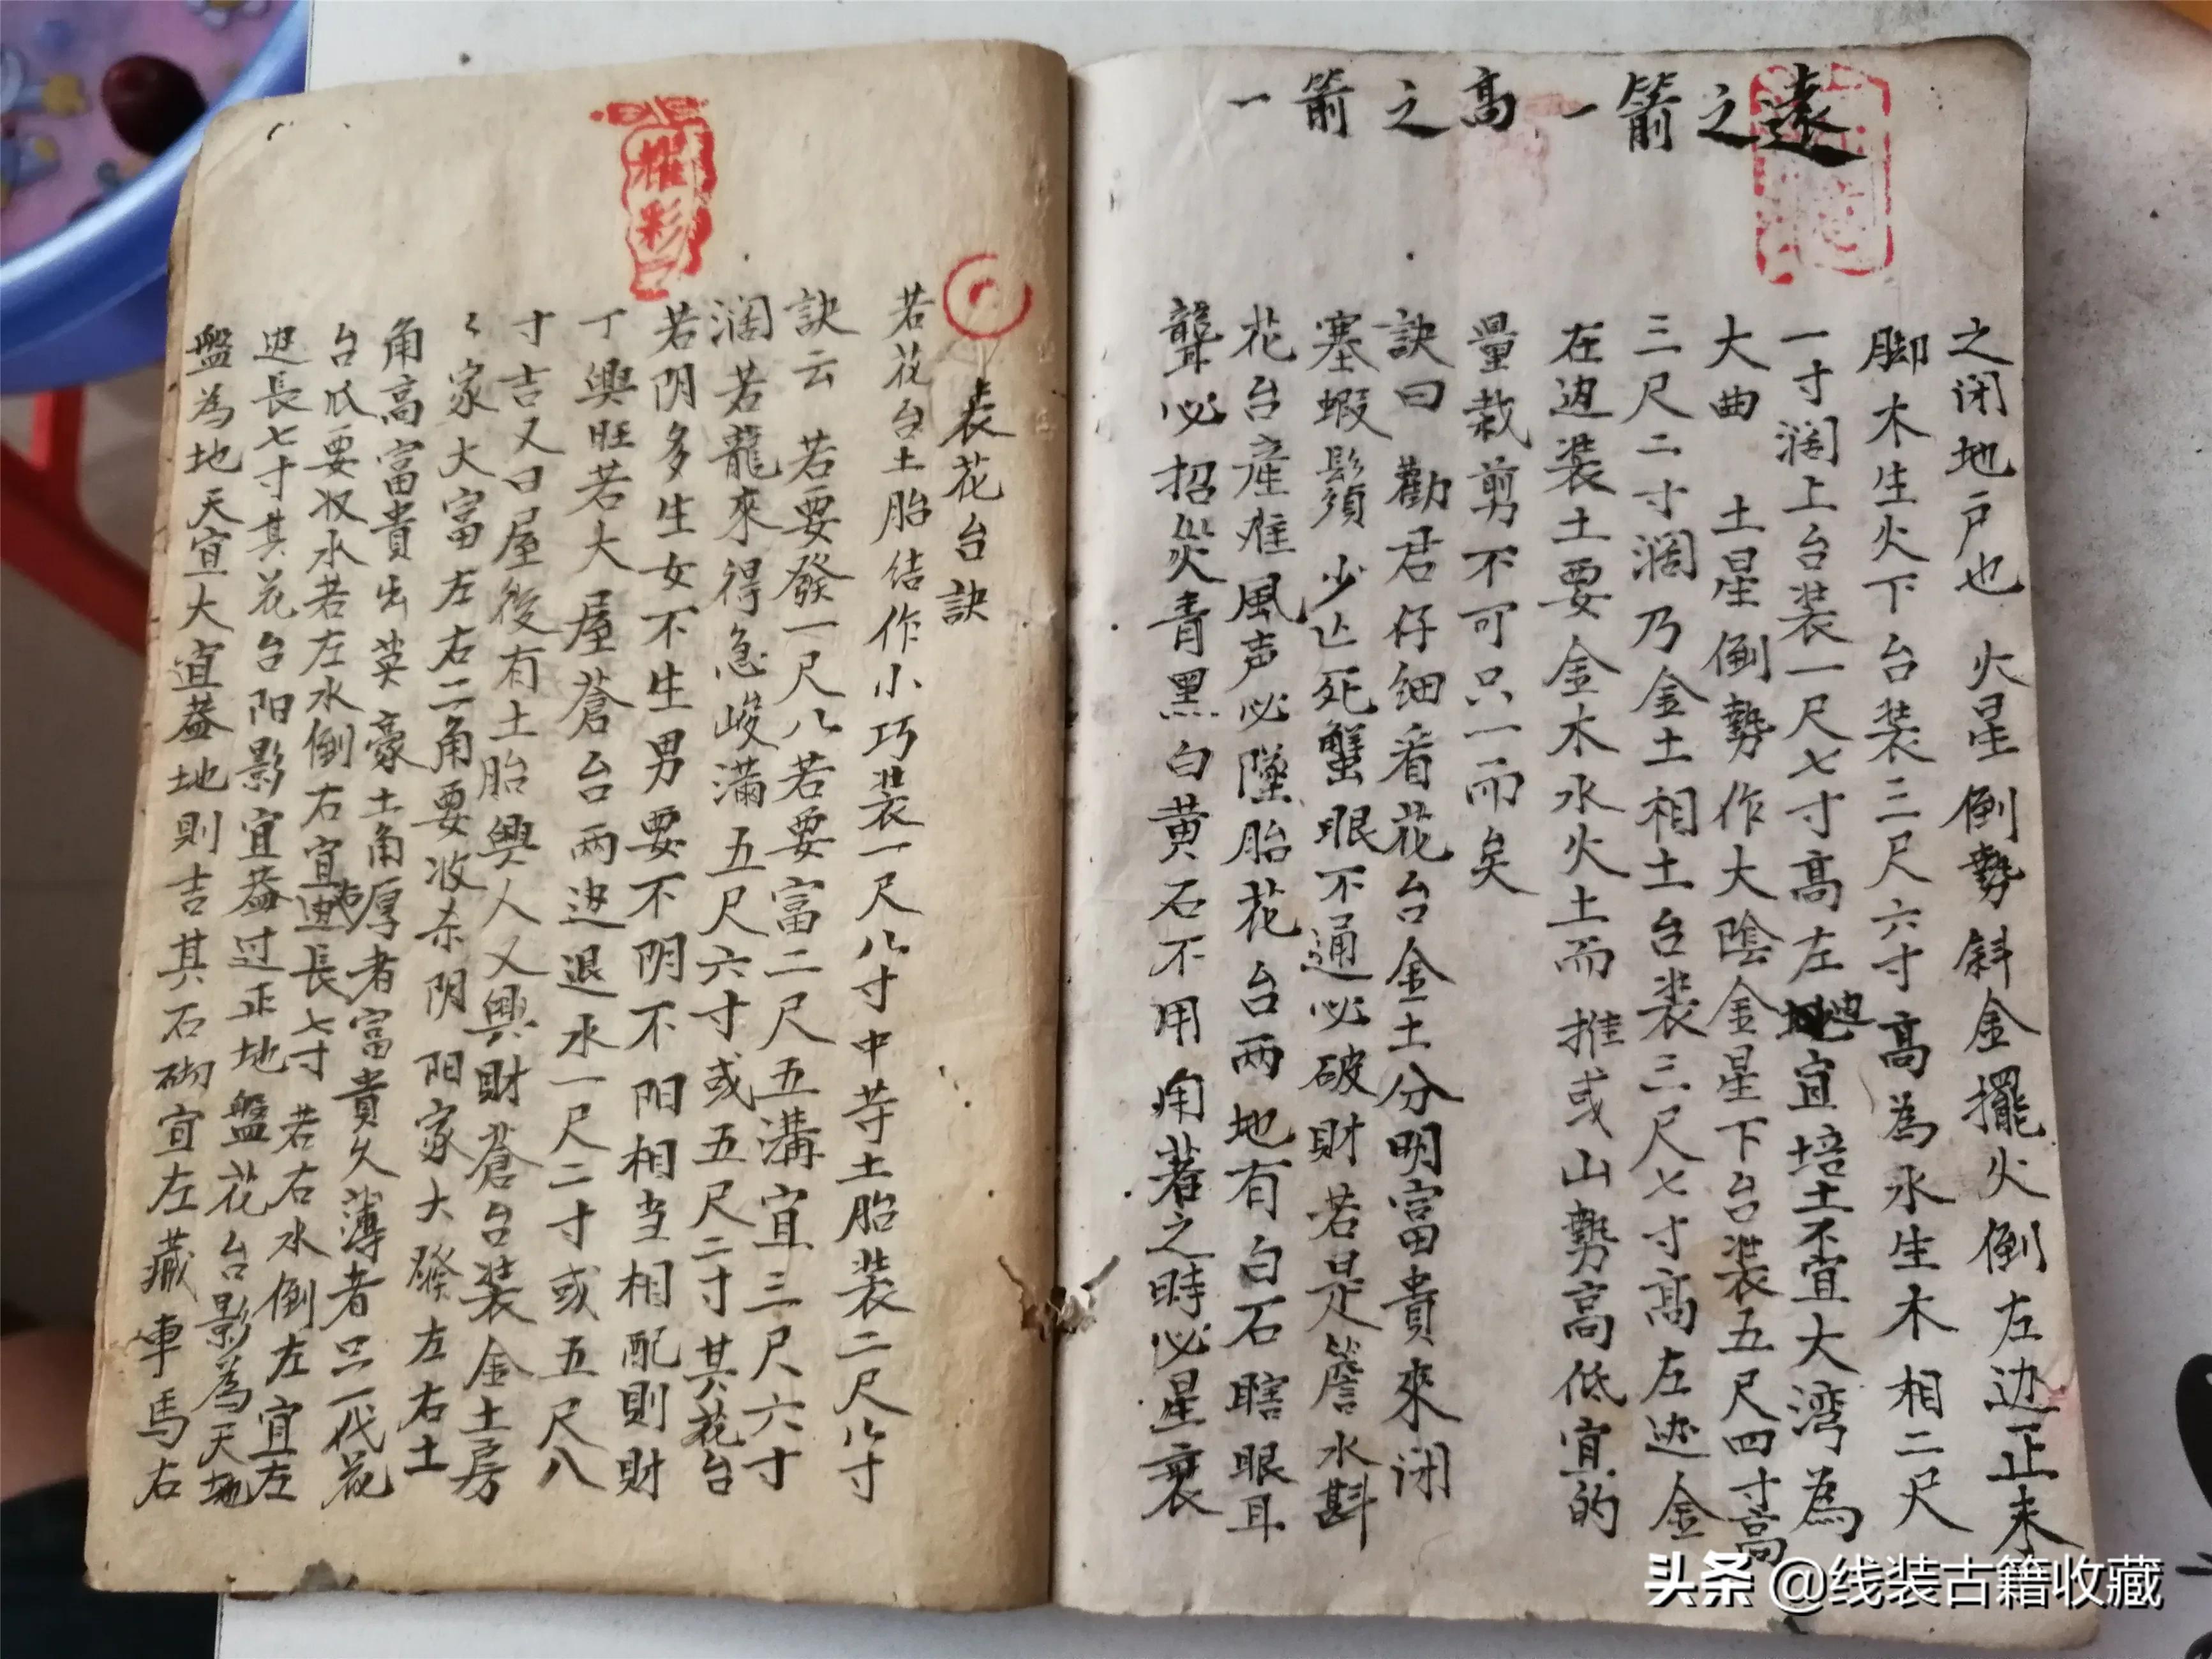 遠之箭一高之箭一
之闭地户也 火星倒勢斜金擺火倒左边正來
脚木生火下台装三尺六寸高為水生木相二尺
一寸濶上台装一尺七寸高左边宜培土不宜大湾為
大曲 土星倒勢作大陰金星下台装五尺四寸高
三尺二寸濶乃金土相土台装三尺七寸高左边金
在边装土要金木水火土而推或山勢高低宜的
量裁剪不可只一而矣
訣曰 勸君仔细看花台金土分明富貴來闭
塞蝦鬚少亡死蟹眼不通必破財若是簷水斟
花台産难風声必墜胎花台两地有白石瞎眼耳
聾必招災青黑白黄石不用用若之時必星衰
裝花台訣
若花台土胎结作小巧装一尺八寸中等土胎装二尺八寸
訣云 若要發一尺八若要富二尺五溝宜三尺六寸
濶若龍來得急峻滿五尺六寸或五尺二寸其花台
若阴多生女不生男要不阴不阳相当相配則財
丁興旺若大屋蒼台两边退水一尺二寸或五尺八
寸吉又曰屋後有土胎興人又興財蒼台装金土房
〻家大富左右二角要收杀阴阳家大發左右土
角高富貴出英豪土角厚者富貴久薄者只一代花
台爪要收水若左水倒右宜右边長七寸 若右水倒左宜左
边長七寸其花台阳影宜蓋过正地盤花台影為天地
盤為地天宜大宜蓋地則吉其石砌宜左藏車馬右
耀彩
头条 @线装古籍收藏